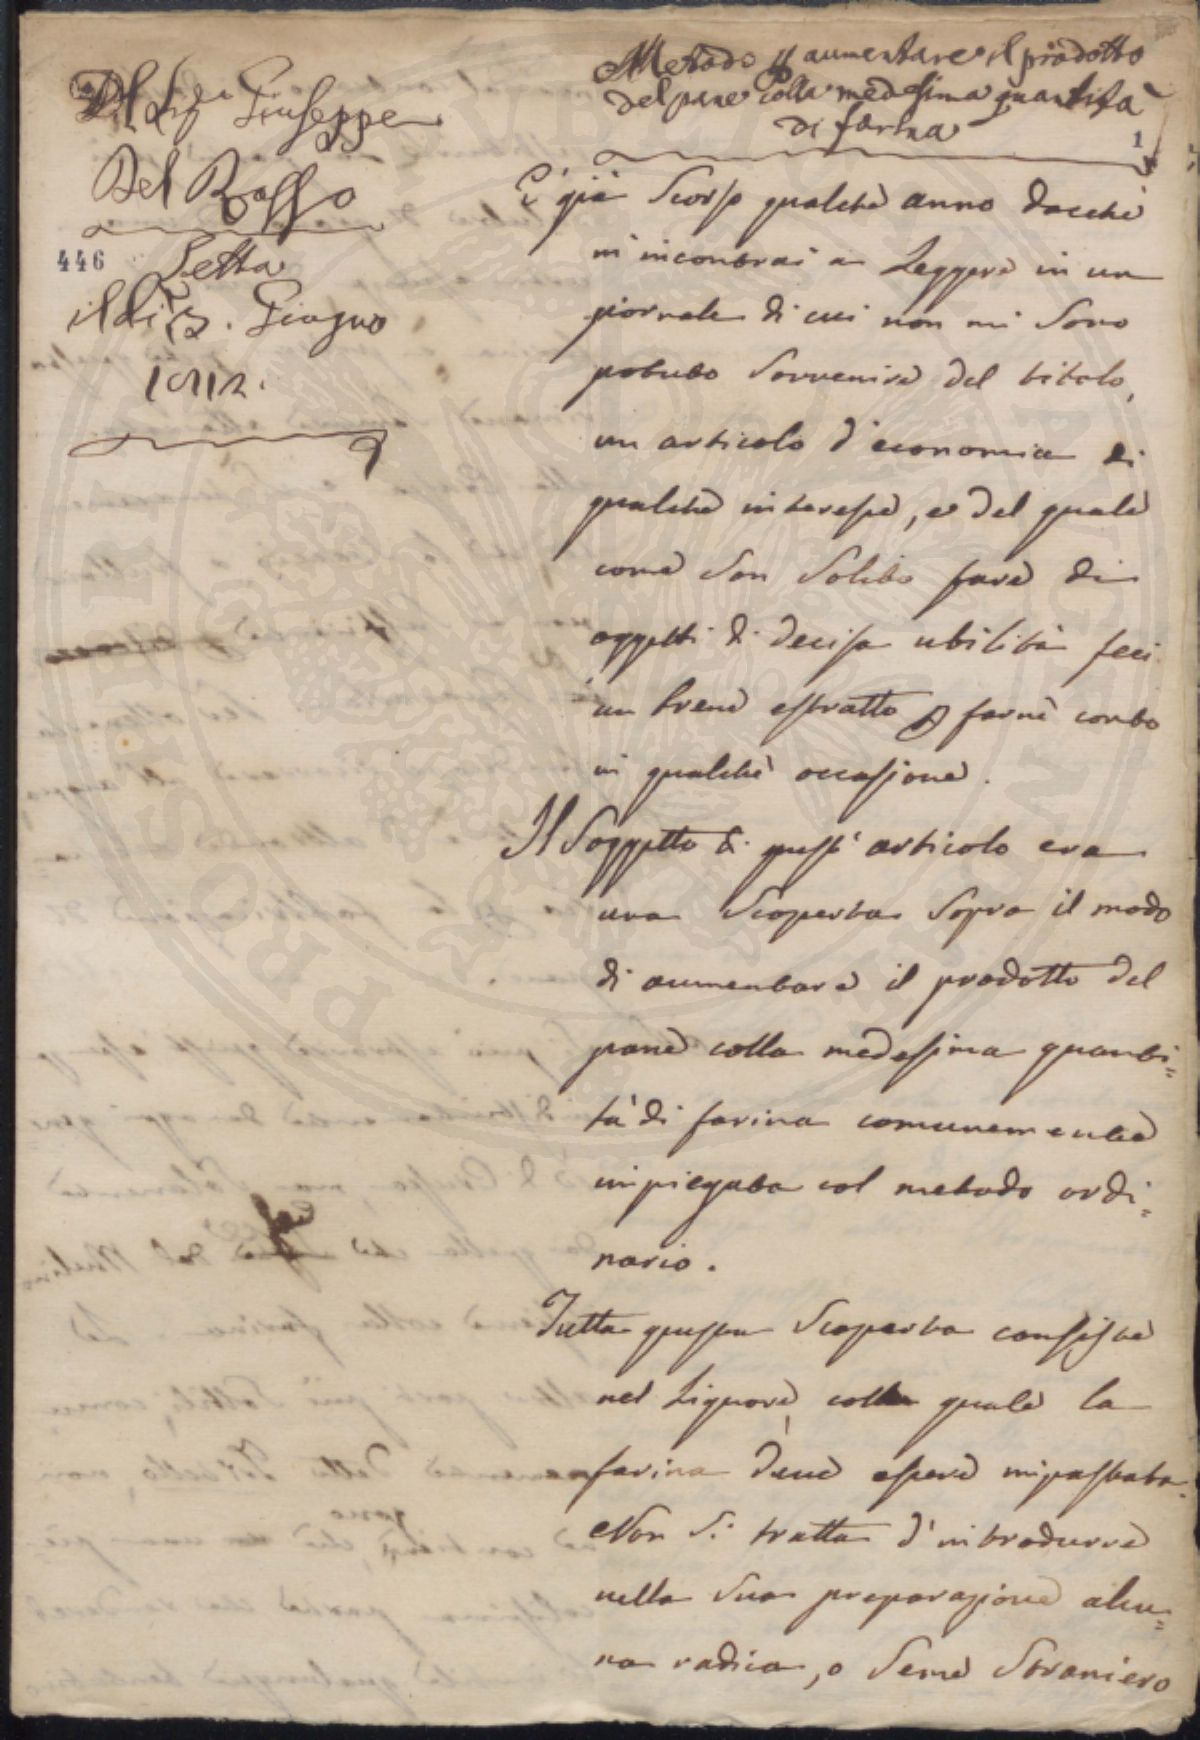 Del Sig.r Giuseppe
Del Rosso
446
Letta
il dì 3. Giugno
1812.
Metodo p aumentare il prodotto
del pane colla medesima quantità
di farina
1
E' già scorso qualche anno dacchè
m'incontrai a Leggere in un
giornale di cui non mi sono
potuto sovvenire del titolo,
un articolo d'economia di
qualche interesse, e del quale
come son solito fare di
oggetti di decisa utilità feci
un breve estratto p farne conto
in qualche occasione.
Il soggetto di quest'articolo era
una scoperta sopra il modo
di aumentare il prodotto del
pane colla medesima quanti=
tà di farina comunemente
impiegata col metodo ordi=
nario.
Tutta questa scoperta consiste
nel Liquore, colla quale la
farina deve essere impastata.
Non si tratta d'introdurre
nella sua preparazione alcu=
na radica, o seme straniero